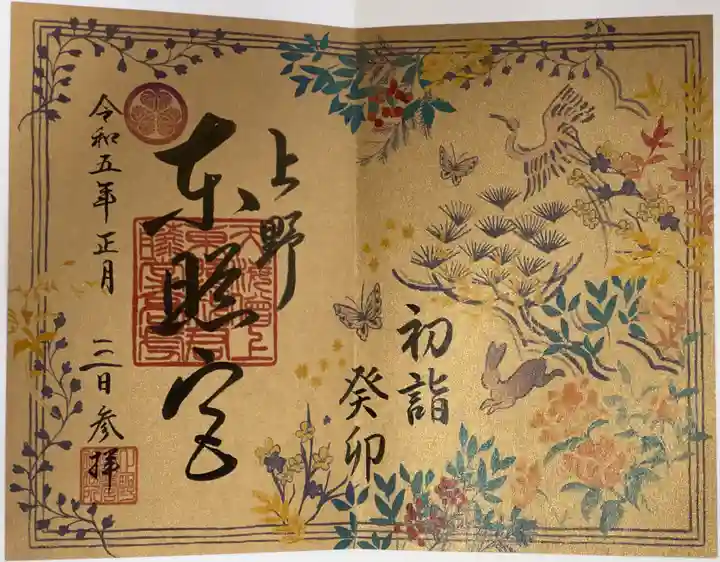 初詣
癸卯
上野
東照宮
令和五年正月三日参拝